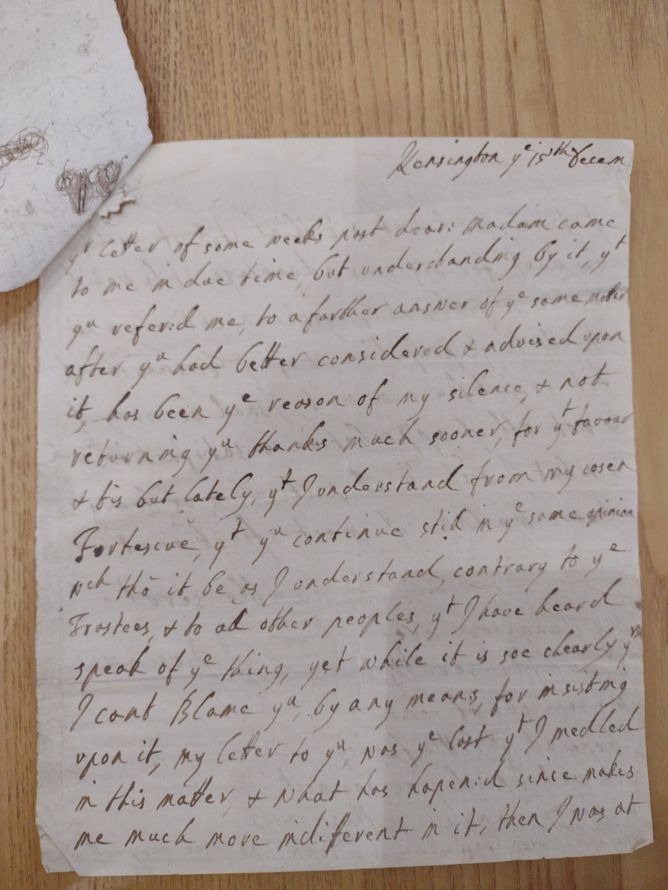 Kensington yᵉ 15th Decem
yʳ letter of some weeks past dear: madam came
to me in due time, but understanding by it, yᵗ
yᵘ referd me, to a farther answer of yᵉ same matter
after yᵘ had better considered & advised upon
it, has been yᵉ reason of my silence, & not
returning yᵘ thanks much sooner, for yᵗ favour
& tis but lately, yᵗ I understand from my cosen
Fortescue, yᵗ yᵘ continue still in yᵉ same opinion
wch thō it be, as I understand, contrary to yᵉ
Trustees, & to all other peoples, yᵗ I have heard
speak of yᵉ thing, yet while it is soe clearly yʳˢ
I cant Blame yᵘ, by any means, for insisting
upon it, my letter to yᵘ, was yᵉ last yᵗ I medled
in this matter, & what has hapened since makes
me much more indifferent in it, then I was at